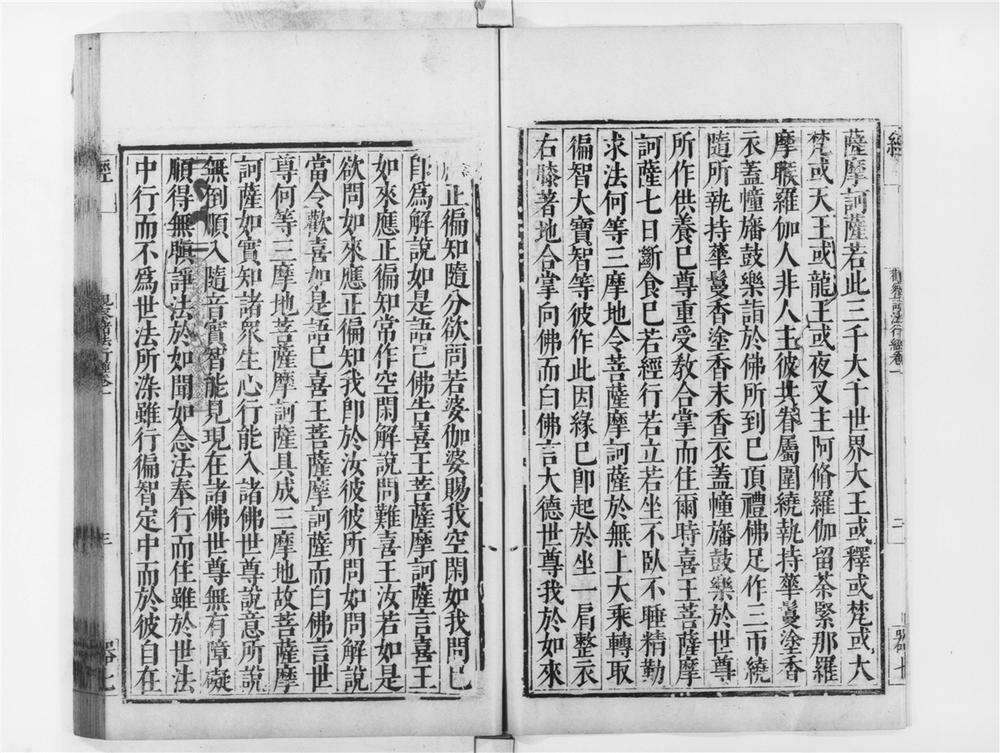 薩摩訶薩若此三千大千世界大王或釋或梵或大
梵或天王或龍王或夜叉主阿脩羅伽留茶緊那羅
摩睺羅伽人非人主彼共眷屬圍繞執持華鬘塗香
衣蓋幢旛鼓樂詣於佛所到已頂禮佛足作三帀繞
隨所執持華鬘香塗香末香衣蓋幢旛鼓樂於世尊
所作供養已尊重受教合掌而住爾時喜王菩薩摩
訶薩七日斷食已若經行若立若坐不臥不睡精勤
求法何等三摩地令菩薩摩訶薩於無上大乘轉取
徧智大寶智等彼作此因緣已卽起於坐一肩整衣
右膝著地合掌向佛而白佛言大德世尊我於如來
應正徧知隨分欲問若婆伽婆賜我空閑如我問已
卽爲解說如是語已佛告喜王菩薩摩訶薩言喜王
如來應正徧知常作空閑解說問難喜王汝若如是
欲問如來應正徧知我卽於汝彼彼所問如問解說
當令歡喜如是語已喜王菩薩摩訶薩而白佛言世
尊何等三摩地菩薩摩訶薩具成三摩地故菩薩摩
訶薩如實知諸衆生心行能入諸佛世尊說意所說
無倒順入隨音實智能見現在諸佛世尊無有障礙
順得無瞋諍法於如聞如念法奉行而住雖於世法
中行而不爲世法所染雖行徧智定中而於彼自在